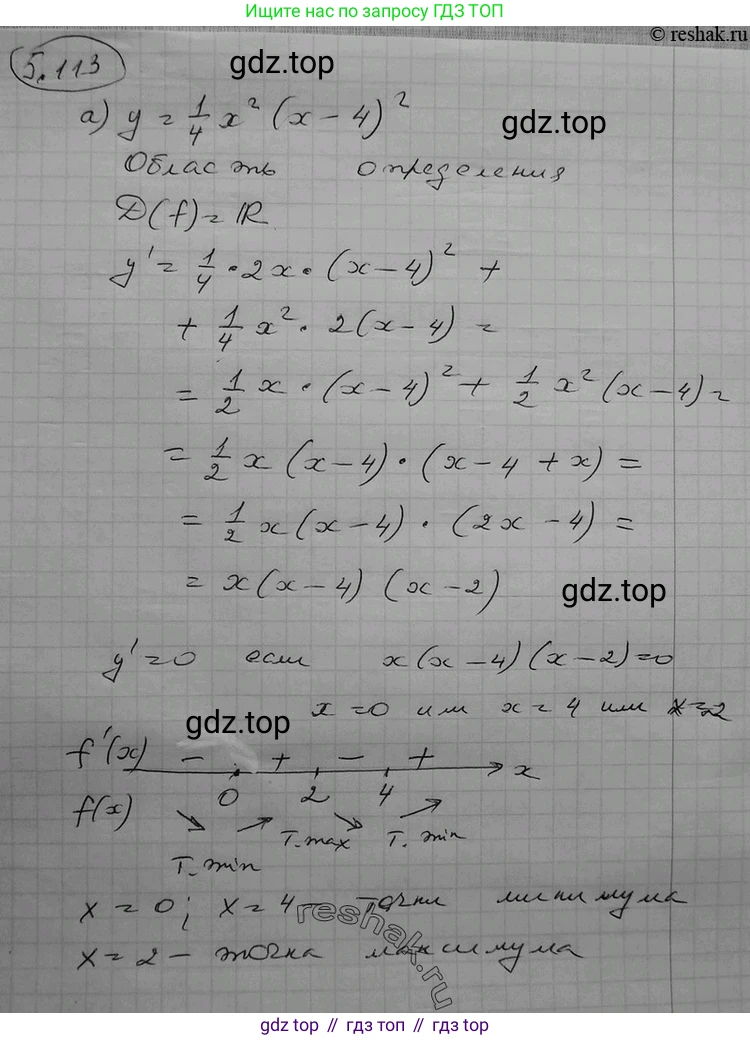 Ищите нас по запросу ГДЗ ТОП
© reshak.ru
5.113
gdz.top
а) y = 1/4 x² (x - 4)²
gdz.top
Область определения
D(f) = ℝ
y' = 1/4 · 2x · (x - 4)² +
+ 1/4 x² · 2(x - 4) =
= 1/2 x · (x - 4)² + 1/2 x² (x - 4) =
= 1/2 x (x - 4) · (x - 4 + x) =
= 1/2 x (x - 4) · (2x - 4) =
= x (x - 4) (x - 2)
gdz.top
y' = 0 если x (x - 4) (x - 2) = 0
x = 0 или x = 4 или x = 2
gdz.top
f'(x) - + - + x
0 2 4
f(x) ↘ ↗ ↘ ↗
т. max т. min
т. min
x = 0; x = 4 - точки минимума
reshak.ru
x = 2 - точка максимума
gdz.top // гдз топ // gdz.top